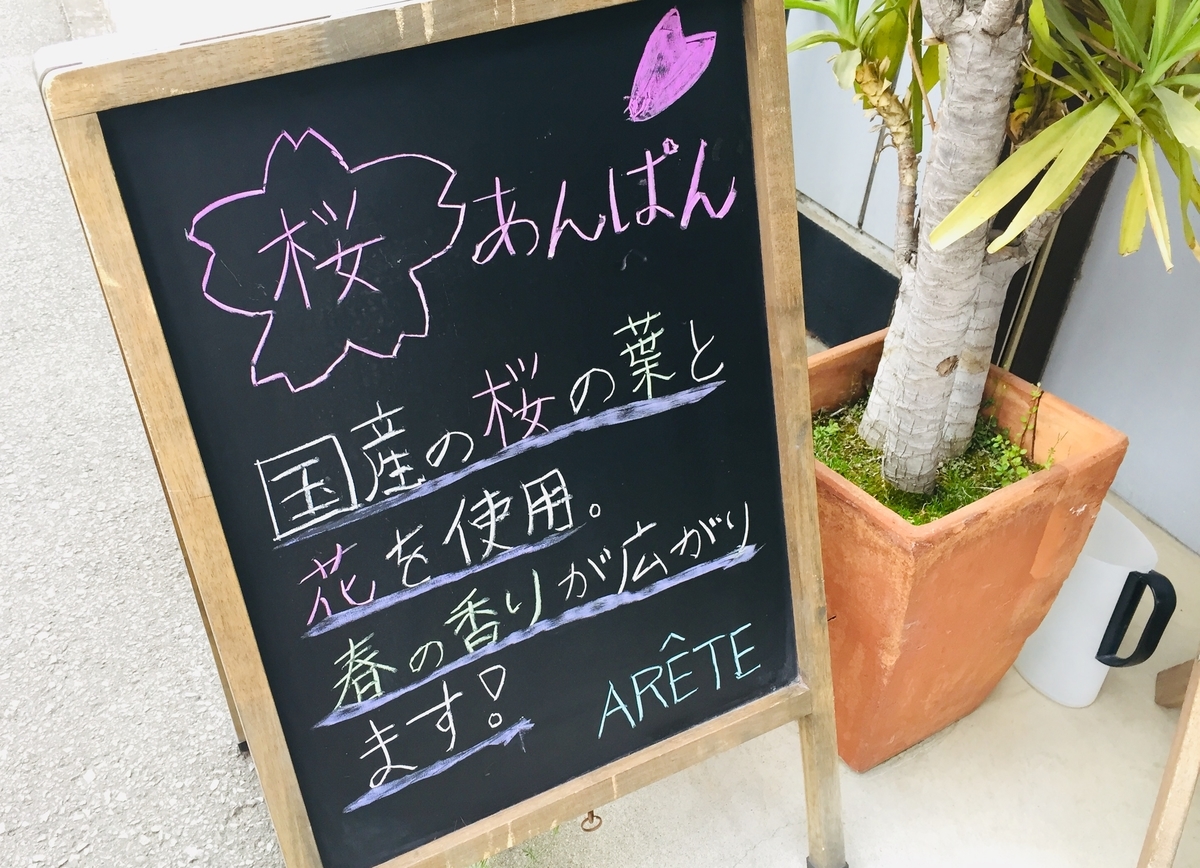 桜あんぱん
国産の桜の葉と
花を使用。
春の香りが広がり
ます!
ARÊTE